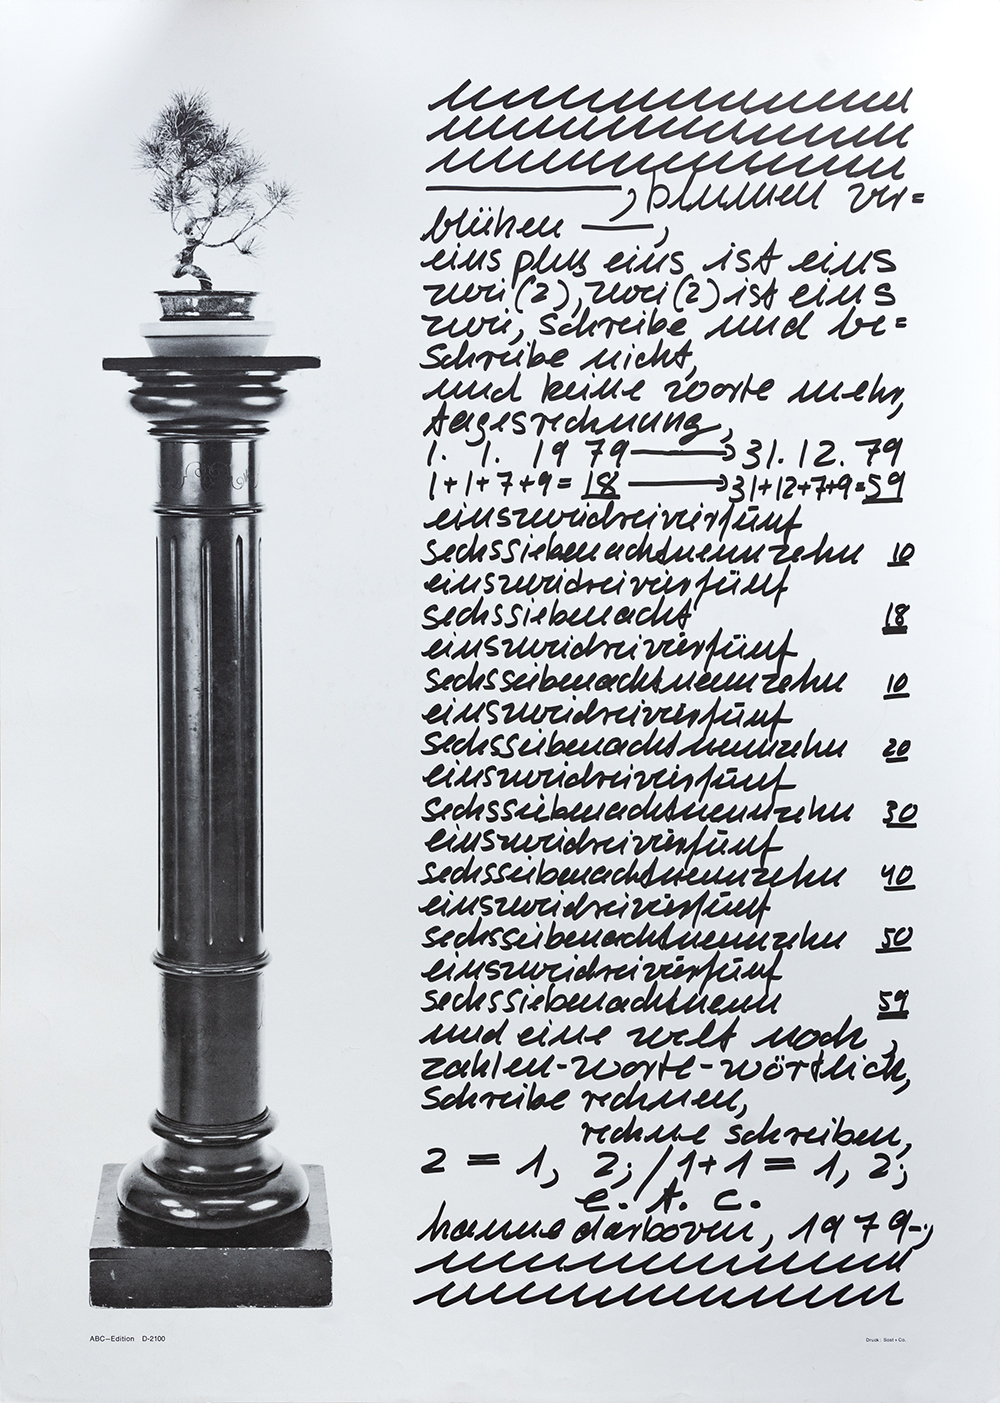 ———, blumen ver=
blühen ——,
eins plus eins ist eins
zwei (2), zwei (2) ist eins
zwei, schreibe und be=
schreibe nicht,
und keine worte mehr,
tagesrechnung,
1. 1. 19 79 → 31. 12. 79
1+1+7+9= 18 → 31+12+7+9=59
einszweidreivierfünf
sechssiebenachtneunzehn 10
einszweidreivierfünf
sechssiebenacht 18
einszweidreivierfünf
sechsseibenachtneunzehn 10
einszweidreivierfünf
sechsseibenachtneunzehn 20
einszweidreivierfünf
sechsseibenachtneunzehn 30
einszweidreivierfünf
sechsseibenachtneunzehn 40
einszweidreivierfünf
sechsseibenachtneunzehn 50
einszweidreivierfünf
sechssiebenachtneun 59
und eine welt noch,
zahlen-worte-wörtlich,
schreibe rechnen,
rechne schreiben,
2 = 1, 2; / 1+1 = 1, 2;
e. t. c.
hanne darboven, 1979-,
ABC–Edition D-2100
Druck: Sost + Co.